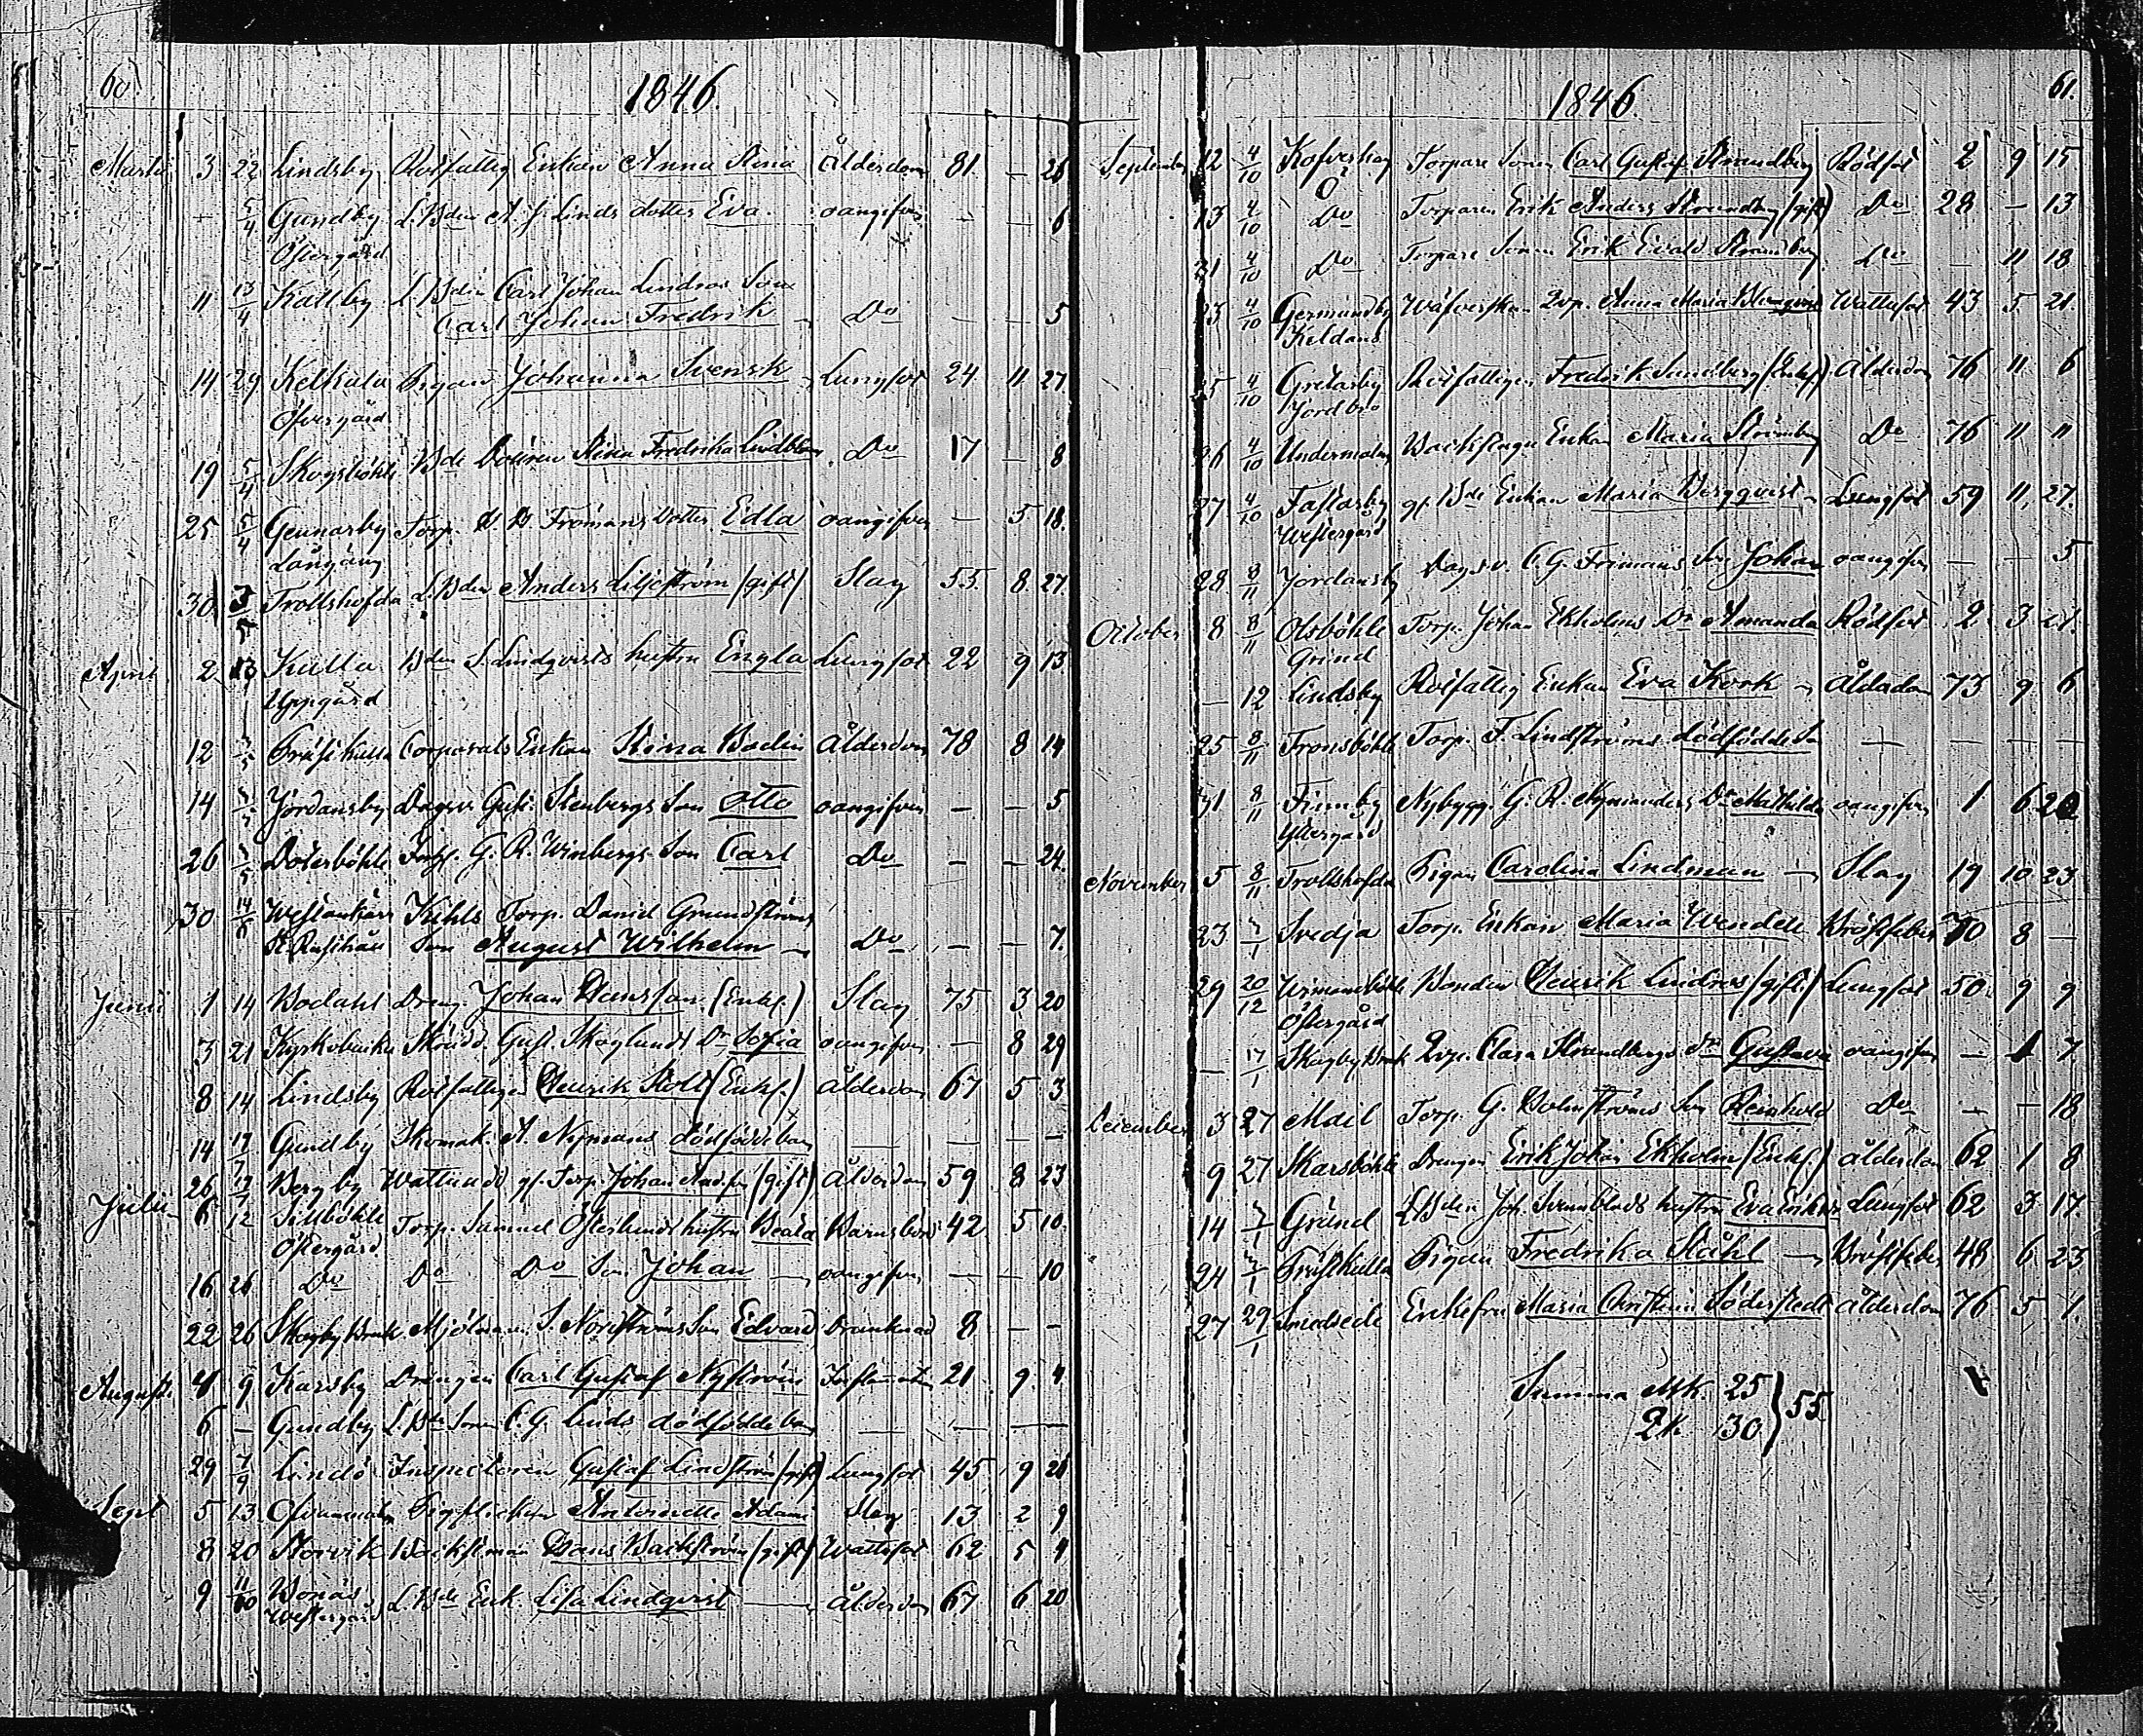 60.
1846.
Martii 3 22 Lindsby Rotfattig Enkan Anna Stina Ålderdom 81 — 21
— 5/4 Gundby L.Bden A. J. Linds dotter Eva oangifven — — 6
Östergård
11 13/4 Kallby L.Bden Carl Johan Lindroos Son
Carl Johan Fredrik — Do — — 5
14 29 Kelkala Pigan Johanna Svensk Lungsot 24 11 27
Öfvergård
19 5/4 Skogsböhle Bde Dottren Stina Fredrika Lindblom Do 17 — 8
25 5/4 Gennarby Torp. Frömans dotter Edla oangifven — 5 18
Långäng
30 3/5 Trollshofda L.Bden Anders Liljeström (gift) Slag 55 8 27
April 2 13 Kulla Bden S. Lindqvists hustru Engla Lungsot 22 9 13
Uppgård
12 3/5 Träskkulla Corporals Enkan Stina Bodin Ålderdom 78 8 14
14 Jordansby Dagsv. Gust. Stenbergs Son Otto oangifven — — 5
26 3/5 Dotterböhle Inhs. G. A. Winbergs Son Carl Do — — 24
30 14/5 Westankärr Kihls Torp. Daniel Grundströms
Son August Wilhelm — Do — — 7
Junii 1 14 Bodahl Dreng. Johan Hansson (Enkl.) Slag 75 3 20
3 21 Kyrkobacka Skrädd. Gust. Skoglunds Dr Sofia oangifven — 8 29
8 14 Lindsby Rotfattigen Henrik Stolt (Enkl.) ålderdom 67 5 3
14 19/7 Gundby Skomak. A. Nymans dödfödde barn — — — —
26 19/7 Bergby Wattnäs gl. Torp. Johan Andss. (gift) Ålderdom 59 8 23
Julii 6 12 Sillböhle Torp. Samuel Österlunds hustru Beata Barnsbörd 42 5 10
Östergård
16 26 Do Do Do Son Johan — oangifven — — 10
22 26 Skogby Bruk Mjölnaren S. Nordströms Son Edvard Drunknad 8 — —
Augusti 4 9 Karsby Drengen Carl Gustaf Nyström Inflammation 21 9 4
6 — Gundby L.Bde Sonen C. G. Linds dödfödde barn — — —
29 7/9 Lindö Inspectoren Gustaf Lindström (gift) Lungsot 45 9 21
Sept 5 13 Ofvanmalm Tigflickan Antoinette Adami Slag 13 2 9
8 20 Storvik Backstuman Hans Backström (gift) Wattusot 62 5 4
9 11/10 Bonäs L.Bde Enk. Lisa Lindqvist — ålderdom 67 6 20
Westergård
61.
1846.
September 12 4/10 Kofverhag Torpare Sonen Carl Gustaf Strandberg Rödsot 2 9 15
13 4/10 Do Torparen Erik Anders Strandberg (gift) Do 28 — 13
21 4/10 Do Torpare Sonen Erik Evald Strandberg Do — 11 18
23 4/10 Germundby Wäfverskan Qvp. Anna Maria Blomqvist Wattusot 43 5 21
Keldans
25 4/10 Gretarby Rotfattigen Fredrik Sandberg (Enkl.) Ålderdom 76 11 6
Jordbro
26 4/10 Undermalm Backstugu Enkan Maria Strömberg Do 76 11 11
27 4/10 Fastarby gl. Bde Enkan Maria Bergqvist — Lungsot 59 11 27
Westergård
28 8/11 Jordansby Dagsv. C. G. Frimans Son Johan oangifven — — 5
October 8 8/11 Olsböhle Torp. Johan Ekholms Dr Amanda Rödsot 2 3 21
Grind
— 12 Lindsby Rotfattig Enkan Eva Kock — Ålderdom 73 9 6
25 8/11 Fronsböhle Torp. F. Lindströms dödfödde Son — — — —
31 8/11 Finnby Nybygg. G. A. Nymanders Dr Mathilda oangifven 1 6 20
Yttergård
November 5 8/11 Trollshofda Pigan Carolina Lindman — Slag 19 10 23
23 Svedja Torp. Enkan Maria Wendell Bröstfeber 70 8 —
29 20/12 Bonden Henrik Lindroos (gift) Lungsot 50 9 9
Östergård
— 17/1 Skogby Bruk Qvp. Clara Strandbergs dr Gustava oangifven — 1 7
December 3 27 Mail Torp. G. Holmströms Son Reinhold Do — — 18
9 27 Skarsböhle Drengen Erik Johan Ekholm (Enkl.) ålderdom 62 1 8
14 Gränd L.Bden Joh. Svenblads hustru Eva Eriksdr Lungsot 62 3 17
24 Träskkulla Pigan Fredrika Ståhl — Bröstfeber 48 6 23
27 29/1 Smedsede Enkefru Maria Christina Söderstedt ålderdom 76 5 1
Summa Mk. 25
Qk. 30 } 55